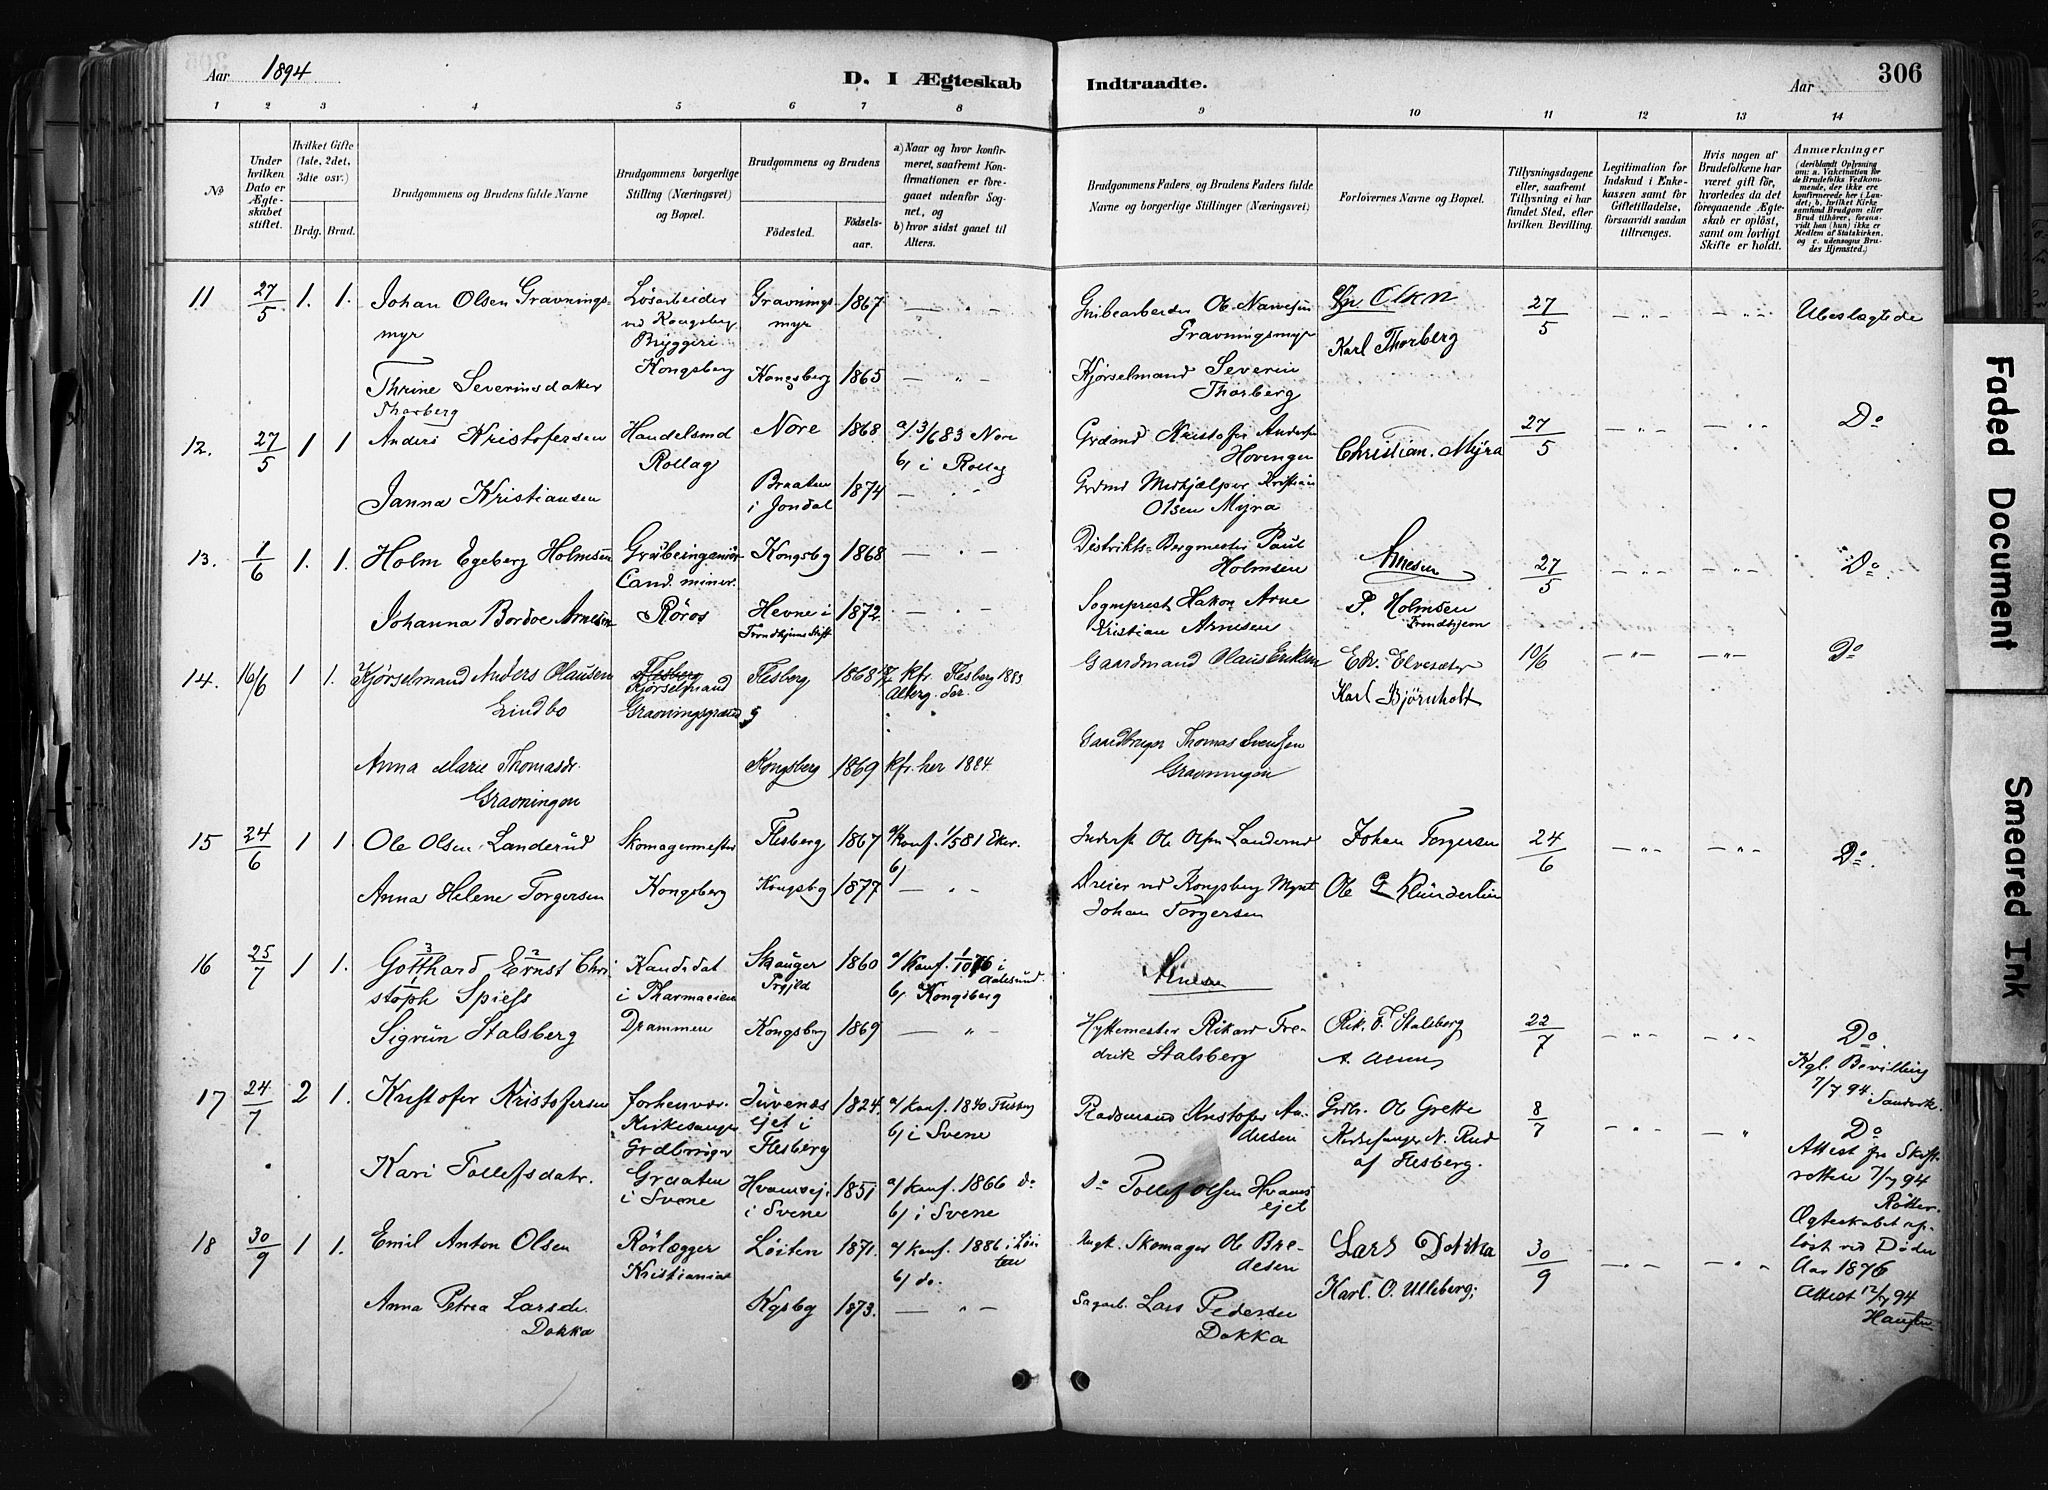 Aar 1894
D. I Ægteskab Indtraadte.
Aar
306
1 2 3 4 5 6 7 8 9 10 11 12 13 14
No
Under hvilken Dato er Ægteskabet stiftet.
Hvilket Gifte (1ste, 2det, 3die osv.)
Brdg. Brud.
Brudgommens og Brudens fulde Navne
Brudgommens borgerlige Stilling (Næringsvei) og Bopæl.
Brudgommens og Brudens
Fødested.
Fødselsaar.
a) Naar og hvor konfirmeret, saafremt Konfirmationen er foregaaet udenfor Sognet, og
b) hvor sidst gaaet til Alters.
Brudgommens Faders og Brudens Faders fulde Navne og borgerlige Stillinger (Næringsvei)
Forlovernes Navne og Bopæl.
Tillysningsdagene eller, saafremt Tillysning ei har fundet Sted, efter hvilken Bevilling.
Legitimation for Indskud i Enkekassen samt for Giftetilladelse, forsaavidt saadan tiltrænges.
Hvis nogen af Brudefolkene har været gift før, hvorledes da det foregaaende Ægteskab er opløst, samt om lovligt Skifte er holdt.
Anmærkninger (deriblandt Oplysning om: a. Vakcination for Brudefolks Vedkommende, der ikke ere konfirmerede her i Landet; b. hvilket Kirkesamfund Brudgom eller Brud tilhører, forsaavidt han (hun) ikke er Medlem af Statskirken, og c. udensogns Brudes Hjemsted.)
11 27/5 1. 1. Johan Olsen Gravningsmyr
Løsarbeider ved Kongsberg Bryggeri Kongsberg
Gravningsmyr 1867
Grubearbeider Ole Gravningsmyr
Olsen
Karl Thorberg
27/5
Ubeslægtede
Thrine Severinsdatter Thorberg
Kongsberg 1865
Kjørselmand Severin Thorberg
12. 27/5 1 1 Anders Kristofersen
Handelsmd Rollag
Nore 1868
a/ 3/6 83 Nore
b/ i Rollag
Grdmd Kristofer Anders Hovengen
Christian. Myra
27/5
Do
Janna Kristiansen
Braaten i Jondal 1874
Grdmd Medhjælper Kristian Olsen Myra
13. 1/6 1. 1. Holm Egeberg Holmsen
Grubeingeniør Cand. miner. Röros
Kongsbg 1868
Distrikts-Bergmester Paul Holmsen
Arnesen
P. Holmsen Trondhjem
27/5
Do.
Johanna Bordoe Arnesen
Hevne i Trondhjems Stift 1872
Sogneprest Hakon Arne Kristian Arnesen
14. 16/6 1 1. Kjørselmand Anders Olausen Lindbo
Flesberg Kjørselmand
Flesberg 1868
kfr. Flesberg 1883
Gaardmand Olaus Eriksen
Edv. Elvesæter
Karl Bjørnholt
10/6
Do
Anna Marie Thomasdr. Gravningen
Kongsberg 1869 kfr. her 1884
Gaardbruger Thomas Svensen Gravningen
15 24/6 1 1. Ole Olsen Landerud
Skomagermester Kongsberg
Flesberg 1867
a/ konf. 1/5 81 Eker.
b/
Inderst Ole Olsen Landerud
Johan Torgersen
24/6
Do.
Anna Helene Torgersen
Kongsbg 1877
Dreier ved Kongsberg Mynt Johan Torgersen
Ole G Klünderlien
16 25/7 1 1. Gotthard Ernst Christoph Spiess
Kandidat i Pharmacien Drammen
Skauger Prgjld 1860
a/ Konf. 1/10 76 i Aalesund.
b/ Kongsberg
Arnesen
Sigrun Stalsberg
Kongsberg 1869
Hyttemester Rikard Fredrik Stalsberg
Rik. F. Stalsberg
22/7
Do.
Kgl. Bevilling 7/7 94
17 24/7 2 1. Kristofer Kristofersen
forhenvær. Kirkesanger Grdbruger Graaten i Svene
Juvenæsejet i Flesberg 1824
a/ konf. 1840 Flesberg
b/ i Svene
Kristofer Andersen
Grdbr. Ole Grette
Kirkesanger N. Rud af Flesberg.
8/7
Do
Attest fra Skifteretten 7/7 94
Ægteskabet opløst ved Døden Aar 1876
Attest 12/7 94
Kari Tollefsdatr.
Hvamsej. i Svene 1851
a/ konf. 1866 do
b/ i Svene
Do Tollef Olsen Hvamsejet
18 30/9 1 1. Emil Anton Olsen
Rörlægger Kristiania
Löiten 1871.
a/ konf. 1886 i Löiten
b/ do.
Skomager Ole Bredesen
Lars Dokka
Karl. O. Ulleberg.
30/9
Anna Petrea Larsdr. Dokka
Kgsbg 1873.
Sagarb. Lars Pedersen Dokka
Faded Document
Smeared Ink